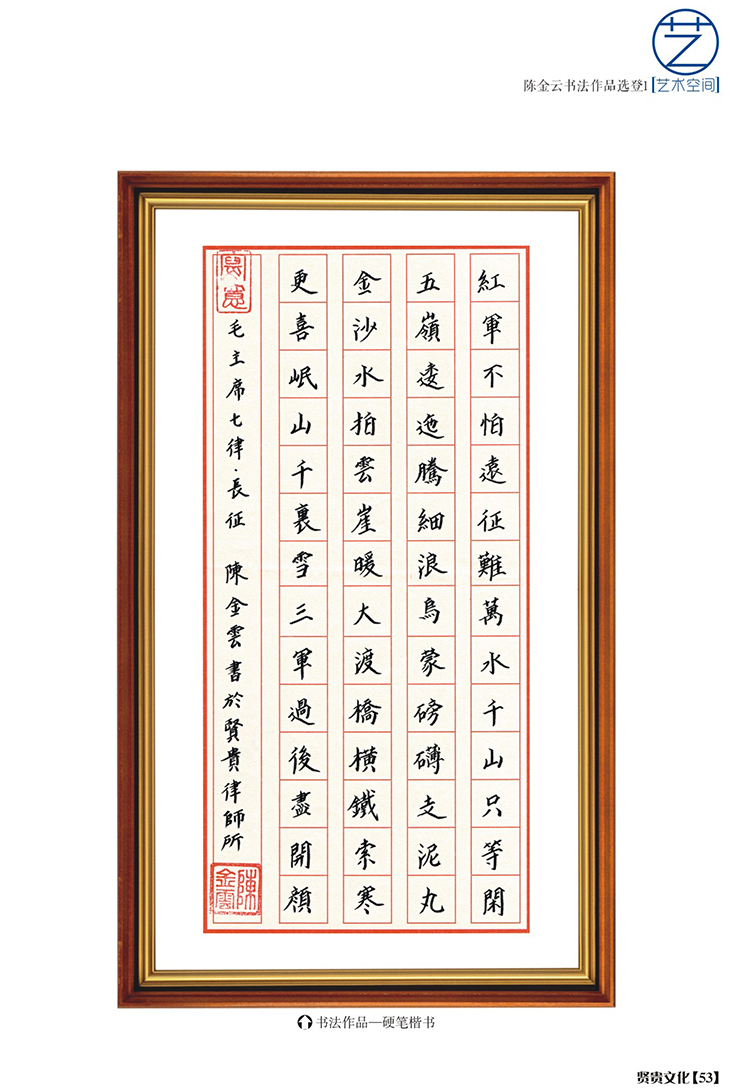 艺
陈金云书法作品选登1【艺术空间】
紅軍不怕遠征難萬水千山只等閑
五嶺逶迤騰細浪烏蒙磅礴走泥丸
金沙水拍雲崖暖大渡橋橫鐵索寒
更喜岷山千裏雪三軍過後盡開顏
毛主席七律·長征 陳金雲書於賢貴律師所
陳金雲
书法作品—硬笔楷书
贤贵文化【53】